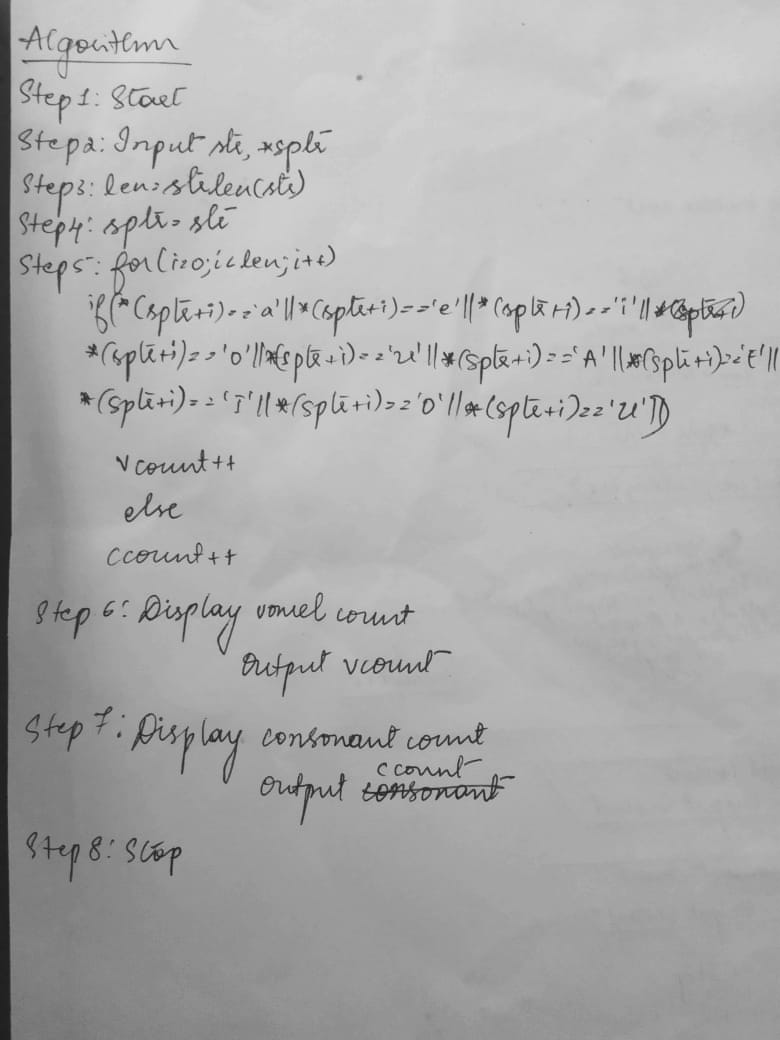 Algorithm
Step 1: Start
Step 2: Input str, *sptr
Step 3: len=strlen(str)
Step 4: sptr= str
Step 5: for(i=0;i<len;i++)
if(*(sptr+i)=='a'||*(sptr+i)=='e'||*(sptr+i)=='i'||
*(sptr+i)=='o'||*(sptr+i)=='u'||*(sptr+i)=='A'||*(sptr+i)=='E'||
*(sptr+i)=='I'||*(sptr+i)=='O'||*(sptr+i)=='U'))
vcount++
else
ccount++
Step 6: Display vowel count
Output vcount
Step 7: Display consonant count
output ccount
Step 8: Stop